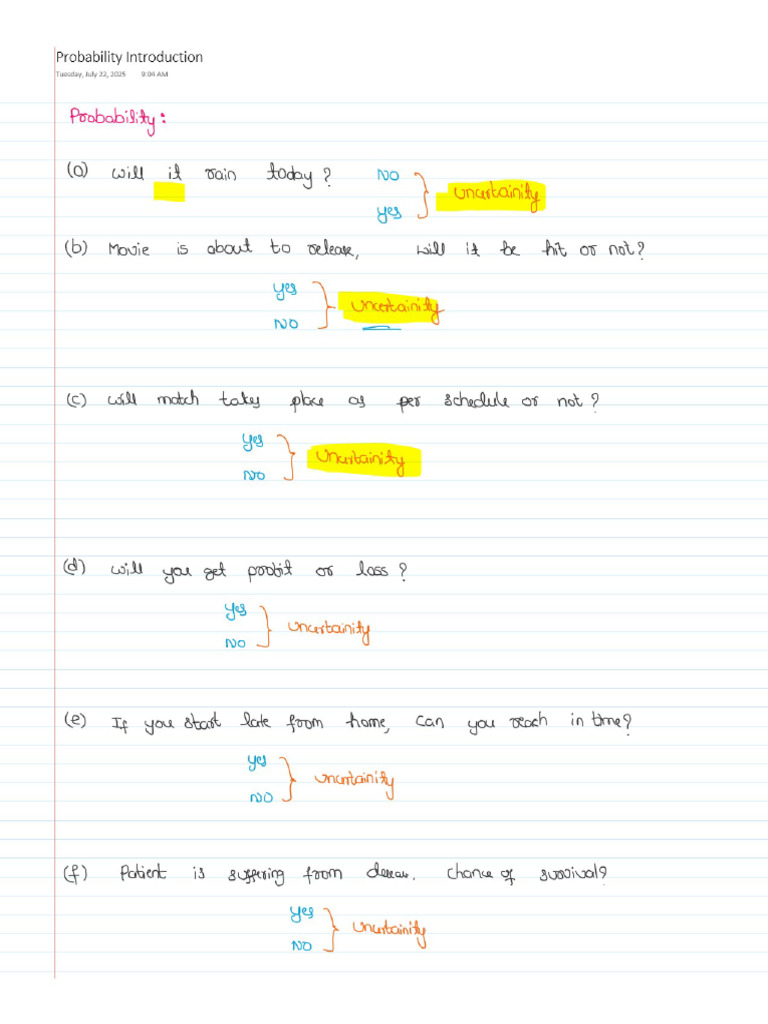 Probability Introduction
Tuesday, July 22, 2025 9:04 AM
Probability:
(a) will it rain today? NO
yes
uncertainity
(b) Movie is about to release, will it be hit or not?
yes
NO
uncertainity
(c) will match takes place as per schedule or not?
yes
NO
uncertainity
(d) will you get profit or loss?
yes
NO
uncertainity
(e) If you start late from home, can you reach in time?
yes
NO
uncertainity
(f) Patient is suffering from . chance of survival?
yes
NO
uncertainity